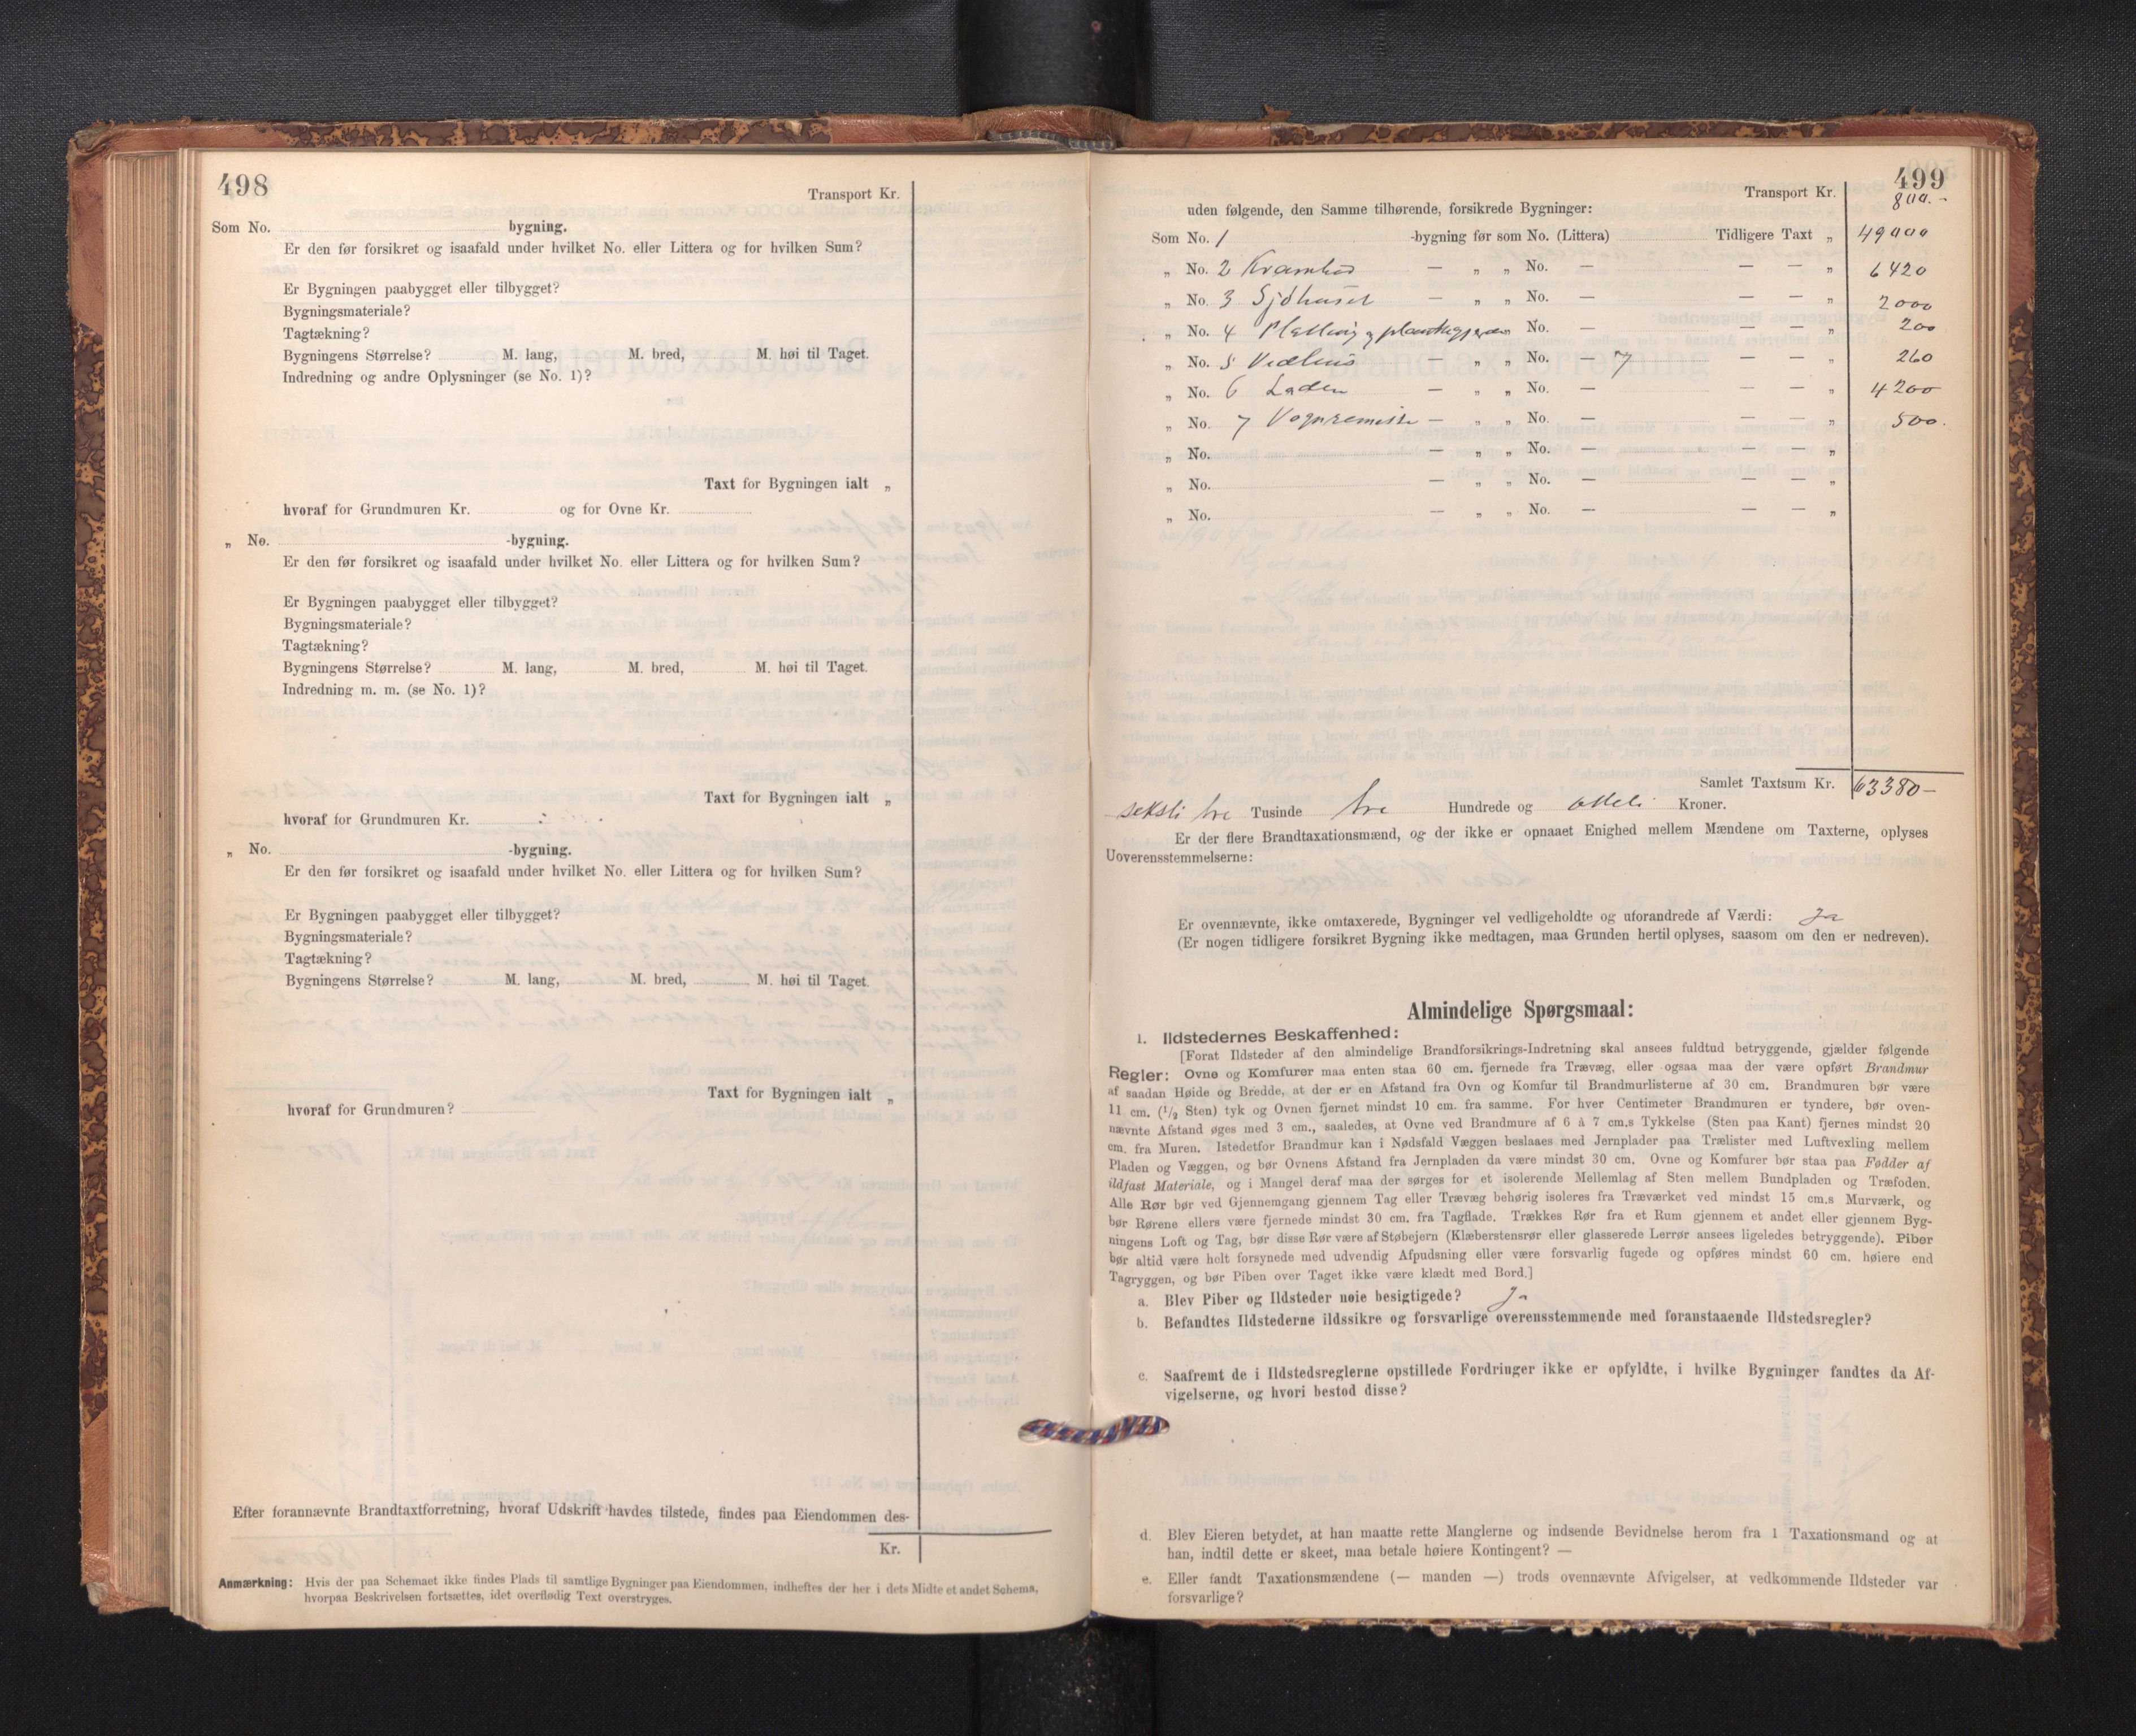 498
Transport Kr.
Som No. bygning.
Er den før forsikret og isaafald under hvilket No. eller Littera og for hvilken Sum?
Er Bygningen paabygget eller tilbygget?
Bygningsmateriale?
Tagtækning?
Bygningens Størrelse? M. lang, M. bred, M. høi til Taget.
Indredning og andre Oplysninger (se No. 1)?
Taxt for Bygningen ialt „
hvoraf for Grundmuren Kr. og for Ovne Kr.
„ No. -bygning.
Er den før forsikret og isaafald under hvilket No. eller Littera og for hvilken Sum?
Er Bygningen paabygget eller tilbygget?
Bygningsmateriale?
Tagtækning?
Bygningens Størrelse? M. lang, M. bred, M. høi til Taget.
Indredning m. m. (se No. 1)?
Taxt for Bygningen ialt „
hvoraf for Grundmuren Kr.
„ No. -bygning.
Er den før forsikret og isaafald under hvilket No. eller Littera og for hvilken Sum?
Er Bygningen paabygget eller tilbygget?
Bygningsmateriale?
Tagtækning?
Bygningens Størrelse? M. lang, M. bred, M. høi til Taget.
Taxt for Bygningen ialt „
hvoraf for Grundmuren?
Efter forannævnte Brandtaxtforretning, hvoraf Udskrift havdes tilstede, findes paa Eiendommen des-
Kr.
Anmærkning: Hvis der paa Schemaet ikke findes Plads til samtlige Bygninger paa Eiendommen, indheftes der her i dets Midte et andet Schema,
hvorpaa Beskrivelsen fortsættes, idet overflødig Text overstryges.
499
Transport Kr. 800.-
uden følgende, den Samme tilhørende, forsikrede Bygninger:
Som No. 1 -bygning før som No. (Littera) Tidligere Taxt „ 49000
„ No. 2 Krambod — „ „ No. — — — „ 6420
„ No. 3 Sjøhuset — „ „ No. — — — „ 2000
„ No. 4 „ No. — — — „ 200
„ No. 5 Vedhus — „ „ No. — 7 — — „ 260
„ No. 6 Laden — „ „ No. — — — „ 4200
„ No. 7 Vognremisse — „ „ No. — — — „ 500.
„ No. — „ „ No. — — — „
„ No. — „ „ No. — — — „
„ No. — „ „ No. — — — „
Samlet Taxtsum Kr. 63380—
seksti tre Tusinde tre Hundrede og otteti Kroner.
Er der flere Brandtaxationsmænd, og der ikke er opnaaet Enighed mellem Mændene om Taxterne, oplyses
Uoverensstemmelserne:
Er ovennævnte, ikke omtaxerede, Bygninger vel vedligeholdte og uforandrede af Værdi: Ja
(Er nogen tidligere forsikret Bygning ikke medtagen, maa Grunden hertil oplyses, saasom om den er nedreven).
Almindelige Spørgsmaal:
1. Ildstedernes Beskaffenhed:
[Forat Ildsteder af den almindelige Brandforsikrings-Indretning skal ansees fuldtud betryggende, gjælder følgende
Regler: Ovne og Komfurer maa enten staa 60 cm. fjernede fra Trævæg, eller ogsaa maa der være opført Brandmur
af saadan Høide og Bredde, at der er en Afstand fra Ovn og Komfur til Brandmurlisterne af 30 cm. Brandmuren bør være
11 cm. (1/2 Sten) tyk og Ovnen fjernet mindst 10 cm. fra samme. For hver Centimeter Brandmuren er tyndere, bør oven-
nævnte Afstand øges med 3 cm., saaledes, at Ovne ved Brandmure af 6 à 7 cm.s Tykkelse (Sten paa Kant) fjernes mindst 20
cm. fra Muren. Istedetfor Brandmur kan i Nødsfald Væggen beslaaes med Jernplader paa Trælister med Luftvexling mellem
Pladen og Væggen, og bør Ovnens Afstand fra Jernpladen da være mindst 30 cm. Ovne og Komfurer bør staa paa Fødder af
ildfast Materiale, og i Mangel deraf maa der sørges for et isolerende Mellemlag af Sten mellem Bundpladen og Træfoden.
Alle Rør bør ved Gjennemgang gjennem Tag eller Trævæg behørig isoleres fra Træværket ved mindst 15 cm.s Murværk, og
bør Rørene ellers være fjernede mindst 30 cm. fra Tagflade. Trækkes Rør fra et Rum gjennem et andet eller gjennem Byg-
ningens Loft og Tag, bør disse Rør være af Støbejern (Klæberstensrør eller glasserede Lerrør ansees ligeledes betryggende). Piber
bør altid være helt forsynede med udvendig Afpudsning eller være forsvarlig fugede og opføres mindst 60 cm. høiere end
Tagryggen, og bør Piben over Taget ikke være klædt med Bord.]
a. Blev Piber og Ildsteder nøie besigtigede? Ja
b. Befandtes Ildstederne ildssikre og forsvarlige overensstemmende med foranstaaende Ildstedsregler?
c. Saafremt de i Ildstedsreglerne opstillede Fordringer ikke er opfyldte, i hvilke Bygninger fandtes da Af-
vigelserne, og hvori bestod disse?
d. Blev Eieren betydet, at han maatte rette Manglerne og indsende Bevidnelse herom fra 1 Taxationsmand og at
han, indtil dette er skeet, maa betale høiere Kontingent? —
e. Eller fandt Taxationsmændene (— manden —) trods ovennævnte Afvigelser, at vedkommende Ildsteder var
forsvarlige?